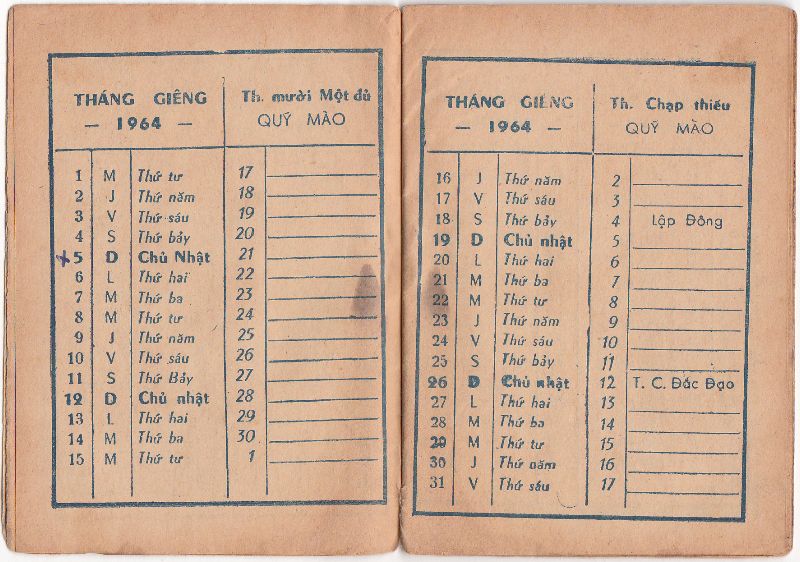 THÁNG GIÊNG
— 1964 —
Th. mười Một đủ
QUÝ MÀO
1 M Thứ tư 17
2 J Thứ năm 18
3 V Thứ sáu 19
4 S Thứ bảy 20
5 D Chủ Nhật 21
6 L Thứ hai 22
7 M Thứ ba 23
8 M Thứ tư 24
9 J Thứ năm 25
10 V Thứ sáu 26
11 S Thứ Bảy 27
12 D Chủ nhật 28
13 L Thứ hai 29
14 M Thứ ba 30
15 M Thứ tư 1
THÁNG GIÊNG
— 1964 —
Th. Chạp thiếu
QUÝ MÀO
16 J Thứ năm 2
17 V Thứ sáu 3
18 S Thứ bảy 4 Lập Đông
19 D Chủ nhật 5
20 L Thứ hai 6
21 M Thứ ba 7
22 M Thứ tư 8
23 J Thứ năm 9
24 V Thứ sáu 10
25 S Thứ bảy 11
26 D Chủ nhật 12 T. C. Đắc Đạo
27 L Thứ hai 13
28 M Thứ ba 14
29 M Thứ tư 15
30 J Thứ năm 16
31 V Thứ sáu 17